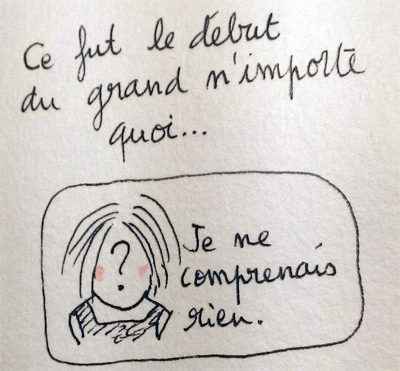 Ce fut le début
du grand n'importe
quoi...
?
Je ne
comprenais
rien.